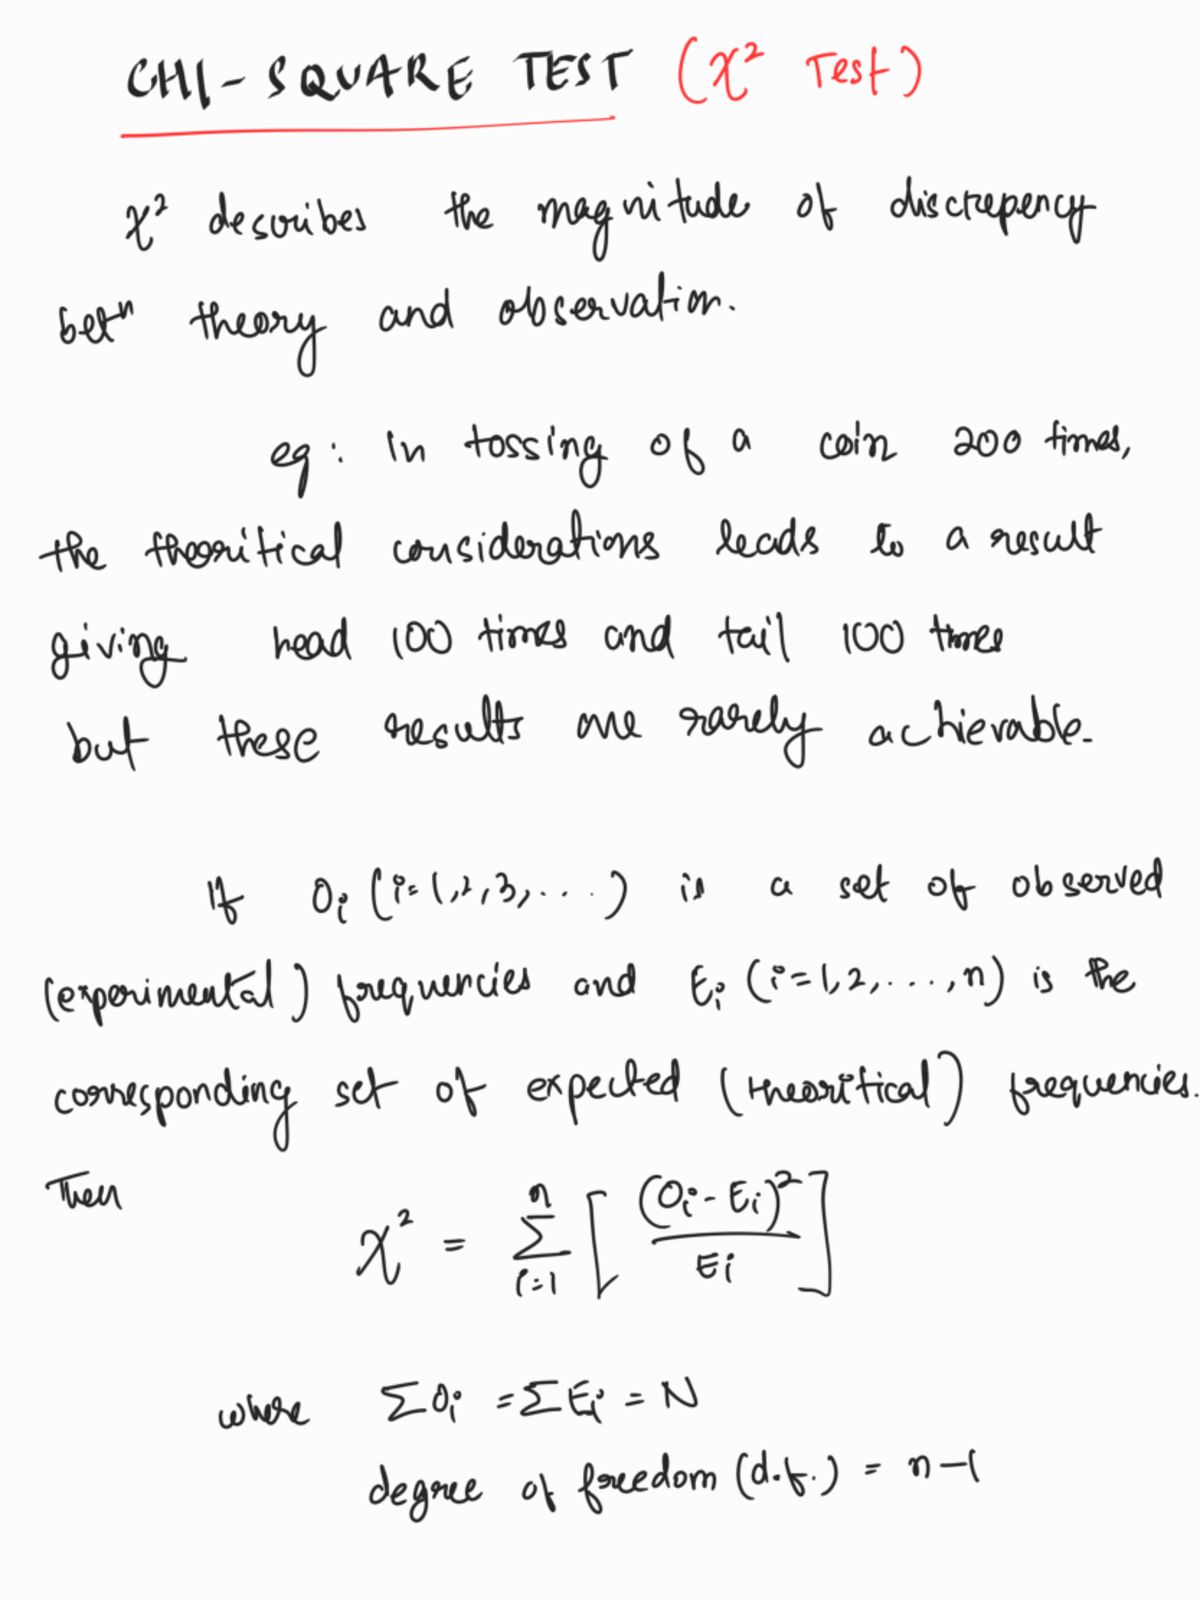 CHI-SQUARE TEST (χ² Test)
χ² describes the magnitude of discrepency
betⁿ theory and observation.
eg: in tossing of a coin 200 times,
the theoritical considerations leads to a result
giving head 100 times and tail 100 times
but these results are rarely achievable.
If Oᵢ (i=1,2,3,....) is a set of observed
(experimental) frequencies and Eᵢ (i=1,2,...,n) is the
corresponding set of expected (theoritical) frequencies.
Then
χ² = ∑ⁿᵢ₌₁ [ (Oᵢ - Eᵢ)² / Eᵢ ]
where ∑Oᵢ = ∑Eᵢ = N
degree of freedom (d.f.) = n-1